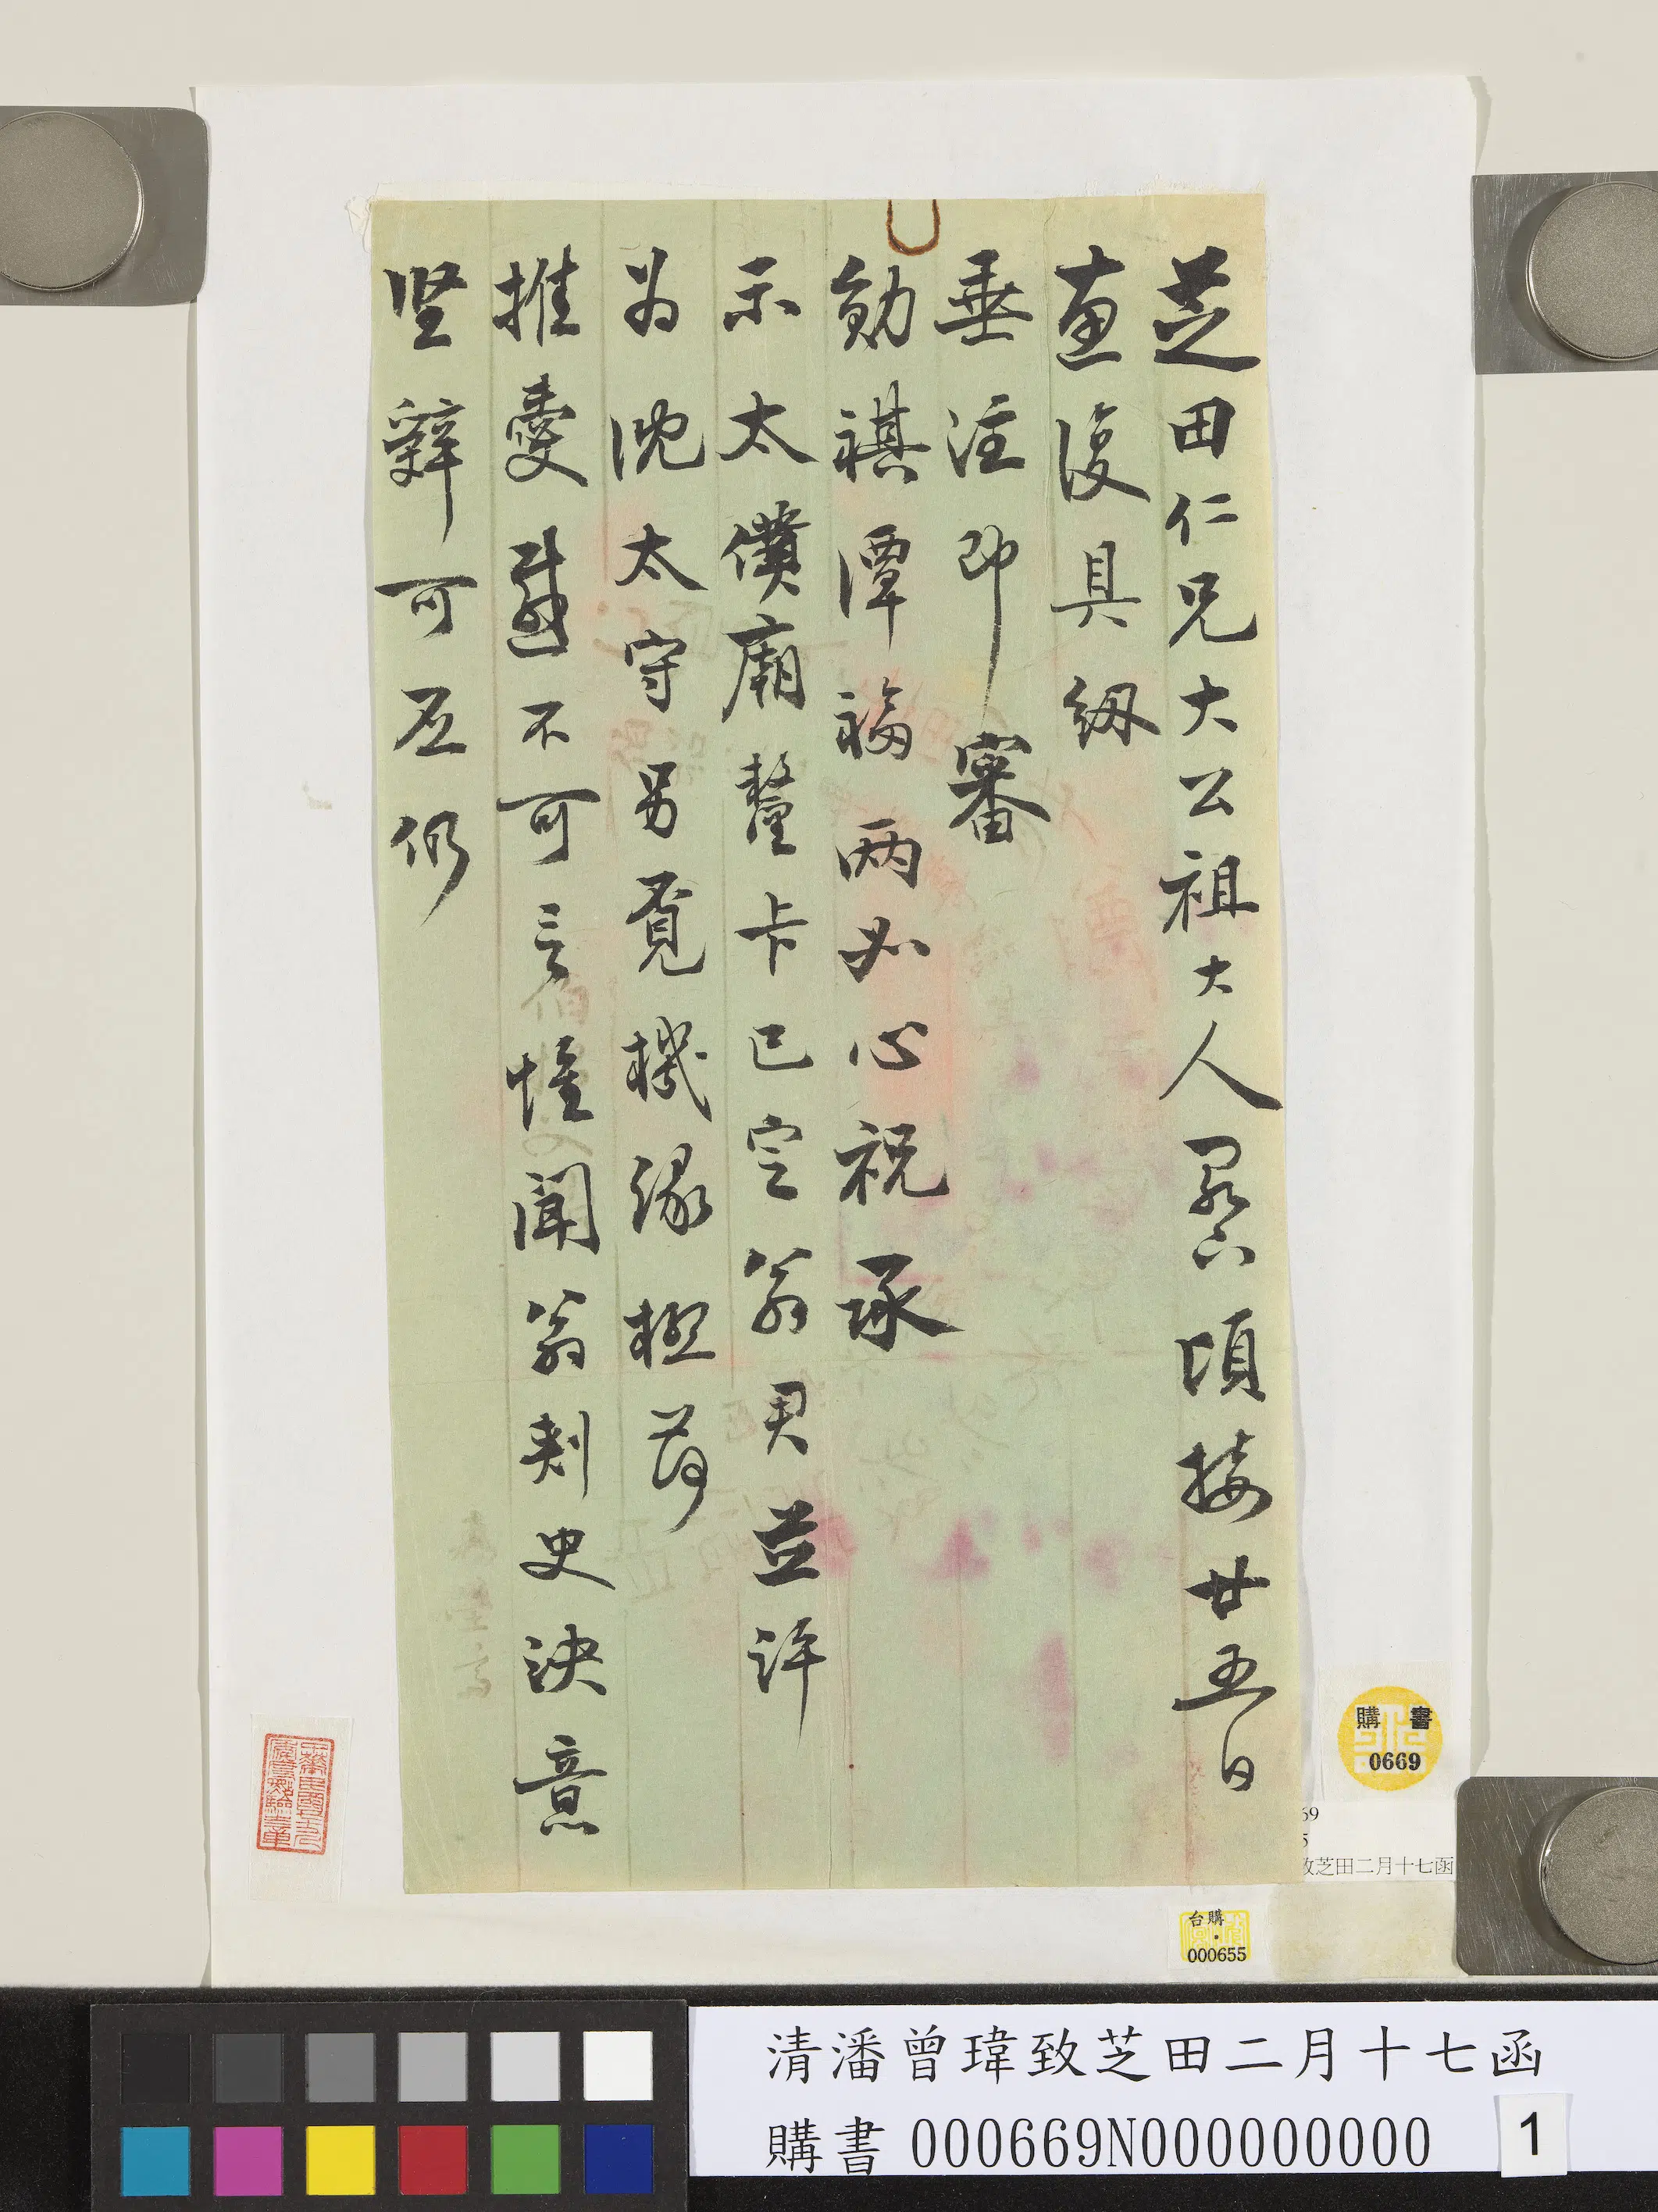 芝田仁兄大公祖大人閣下頃接廿五日
惠復具紉
垂注即審
勛祺潭福兩如心祝承
示太僕廟釐卡已定翁君並許
为沈太守另覓機緣極荷
推愛感不可言惟聞翁刺史決意
堅辭可否仍
購書
0669
69
5
致芝田二月十七函
台購
000655
清潘曾瑋致芝田二月十七函
購書 000669N000000000
1